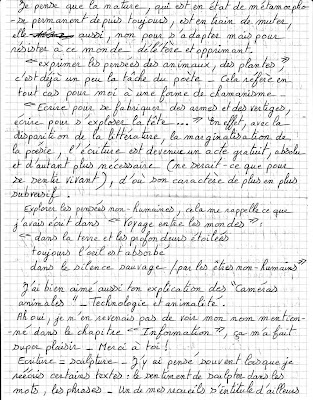 Je pense que la nature, qui est en état de métamorpho-
se permanent depuis toujours, est en train de muter,
elle aussi, non pour s'adapter mais pour
résister à ce monde délétère et opprimant.
" exprimer les pensées des animaux, des plantes "
c'est déjà un peu la tâche du poète - Cela réfère en
tout cas pour moi à une forme de chamanisme
" Ecrire pour se fabriquer des armes et des vertiges,
écrire pour s'exploser la tête ... " En effet, avec la
disparition de la littérature, la marginalisation de
la poésie, l'écriture est devenue un acte gratuit, absolu
et d'autant plus nécessaire (ne serait-ce que pour
se sentir vivant), d'où son caractère de plus en plus
subversif.
Explorer les pensées non-humaines, cela me rappelle ce que
j'avais écrit dans " Voyage entre les mondes " :
" dans la terre et les profondeurs étoilées
toujours l'oeil est absorbé
dans le silence sauvage / par les êtres non-humains "
J'ai bien aimé aussi ton explication des "caméras
animales" - Technologie et animalité.
Ah oui, je n'en revenais pas de voir mon nom mention-
-né dans le chapitre " Information ", ça m'a fait
super plaisir - Merci à toi !
Ecriture = sculpture - J'y ai pensé souvent lorsque je
réécris certains textes : le sentiment de sculpter dans les
mots, les phrases - Un de mes recueils s'intitule d'ailleurs